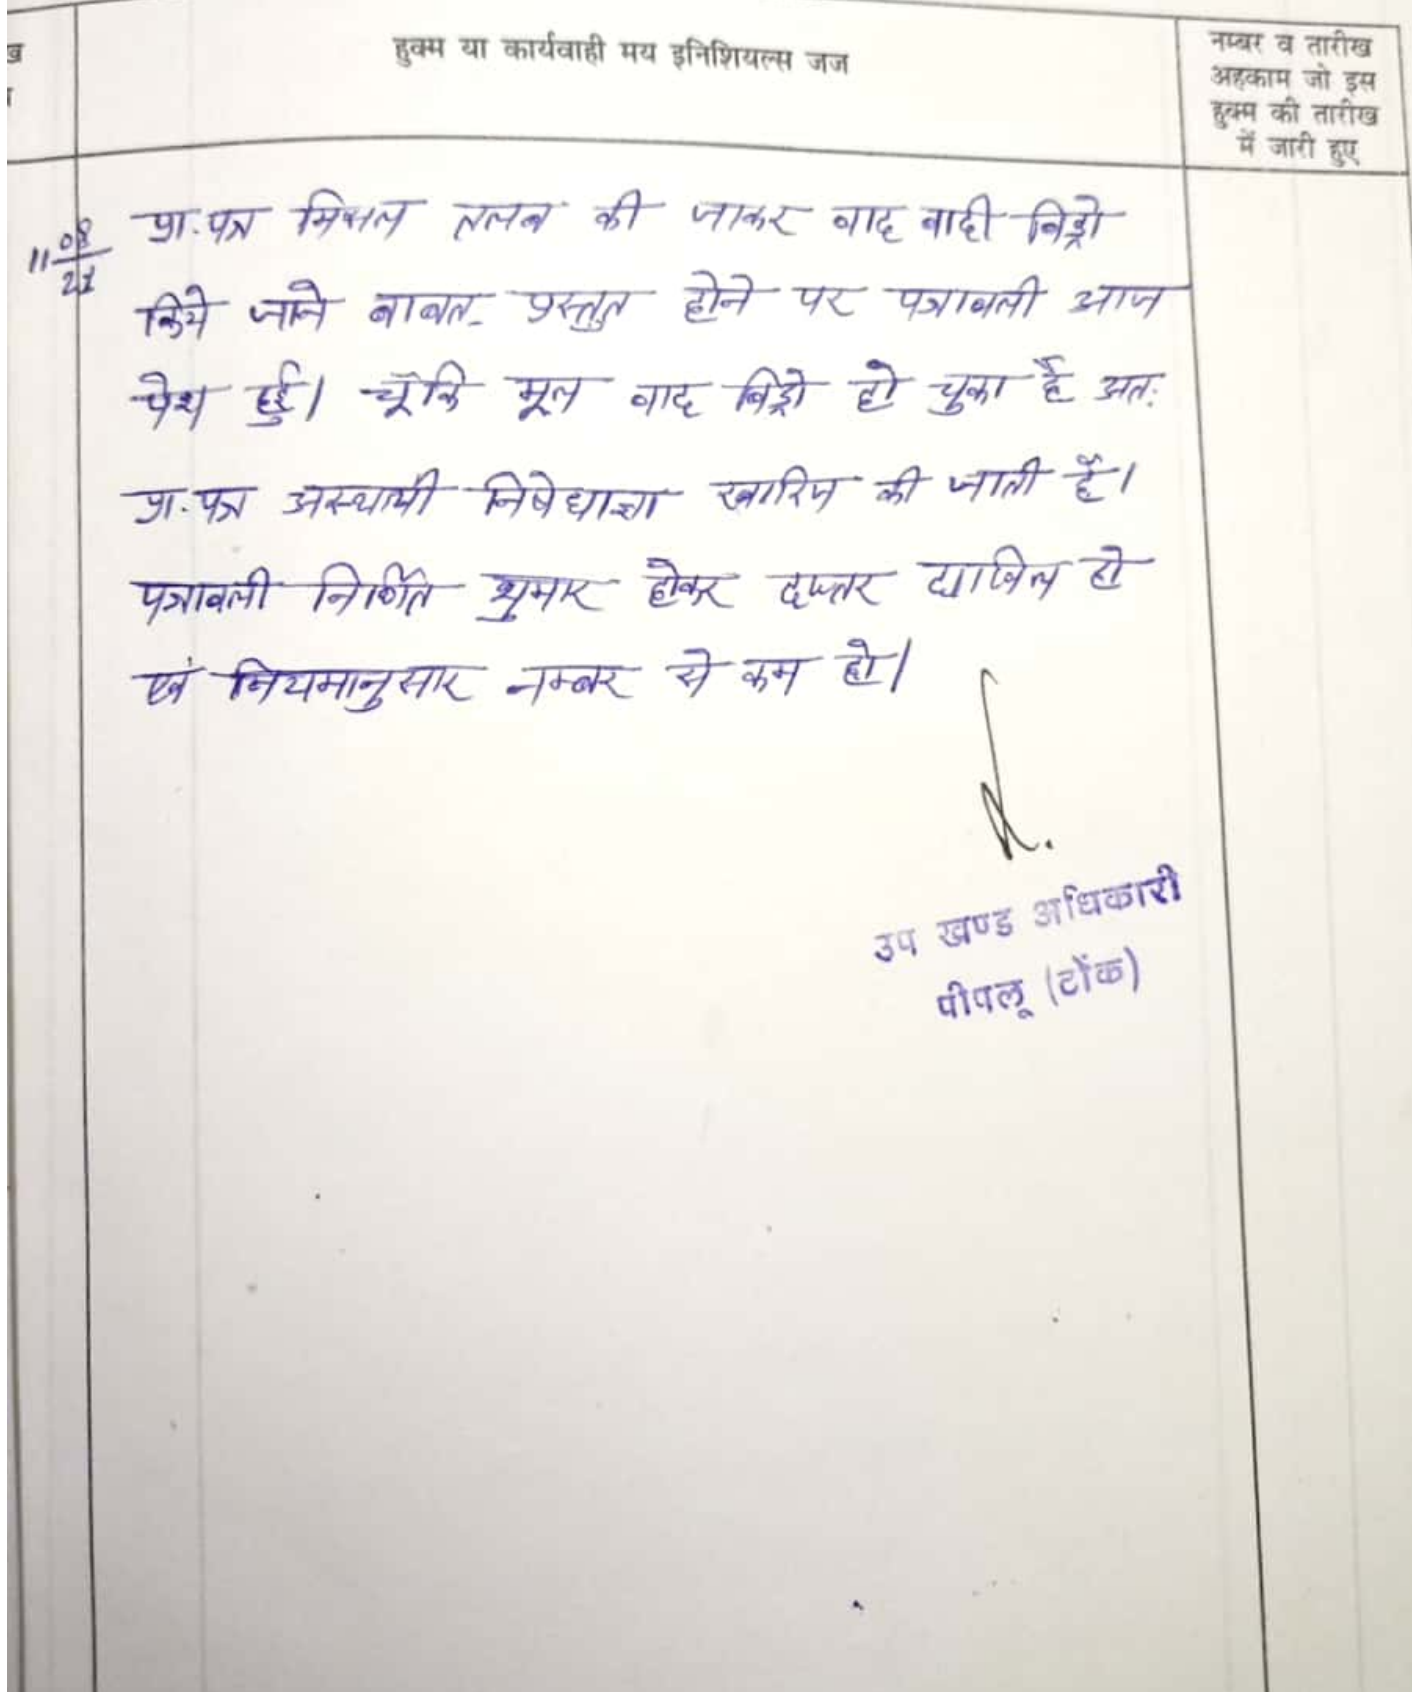 ख
हुक्म या कार्यवाही मय इनिशियल्स जज
नम्बर व तारीख
अहकाम जो इस
हुक्म की तारीख
में जारी हुए
11 08/21
प्रा.पत्र मिसल तलब की जाकर वाद वादी विड्रो
किये जाने बाबत प्रस्तुत होने पर पत्रावली आज
पेश हुई। चूंकि मूल वाद विड्रो हो चुका है अतः
प्रा.पत्र अस्थायी निषेधाज्ञा खारिज की जाती है।
पत्रावली निर्णित शुमार होकर दफ्तर दाखिल हो
एवं नियमानुसार नम्बर से कम हो।
उप खण्ड अधिकारी
पीपलू (टोंक)